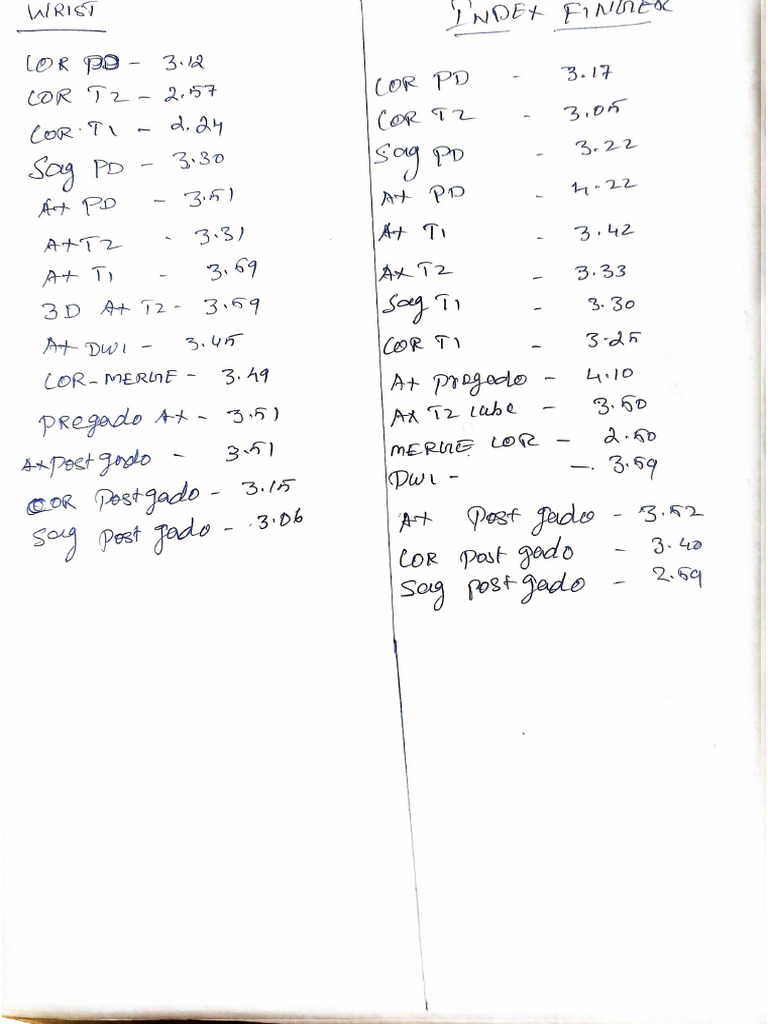 WRIST
COR PD - 3.12
COR T2 - 2.57
COR T1 - 2.24
Sag PD - 3.30
Ax PD - 3.51
Ax T2 - 3.31
Ax T1 - 3.59
3D Ax T2 - 3.59
Ax DWI - 3.45
COR-MERGE - 3.49
PRegado Ax - 3.51
Ax Post gado - 3.51
COR Postgado - 3.15
Sag post gado - 3.06
INDEX FINGER
COR PD - 3.17
COR T2 - 3.05
Sag PD - 3.22
Ax PD - 4.22
Ax T1 - 3.42
Ax T2 - 3.33
Sag T1 - 3.30
COR T1 - 3.25
Ax pregado - 4.10
Ax T2 cube - 3.50
MERGE COR - 2.50
DWI - - 3.59
Ax Post gado - 3.52
COR post gado - 3.40
Sag post gado - 2.59